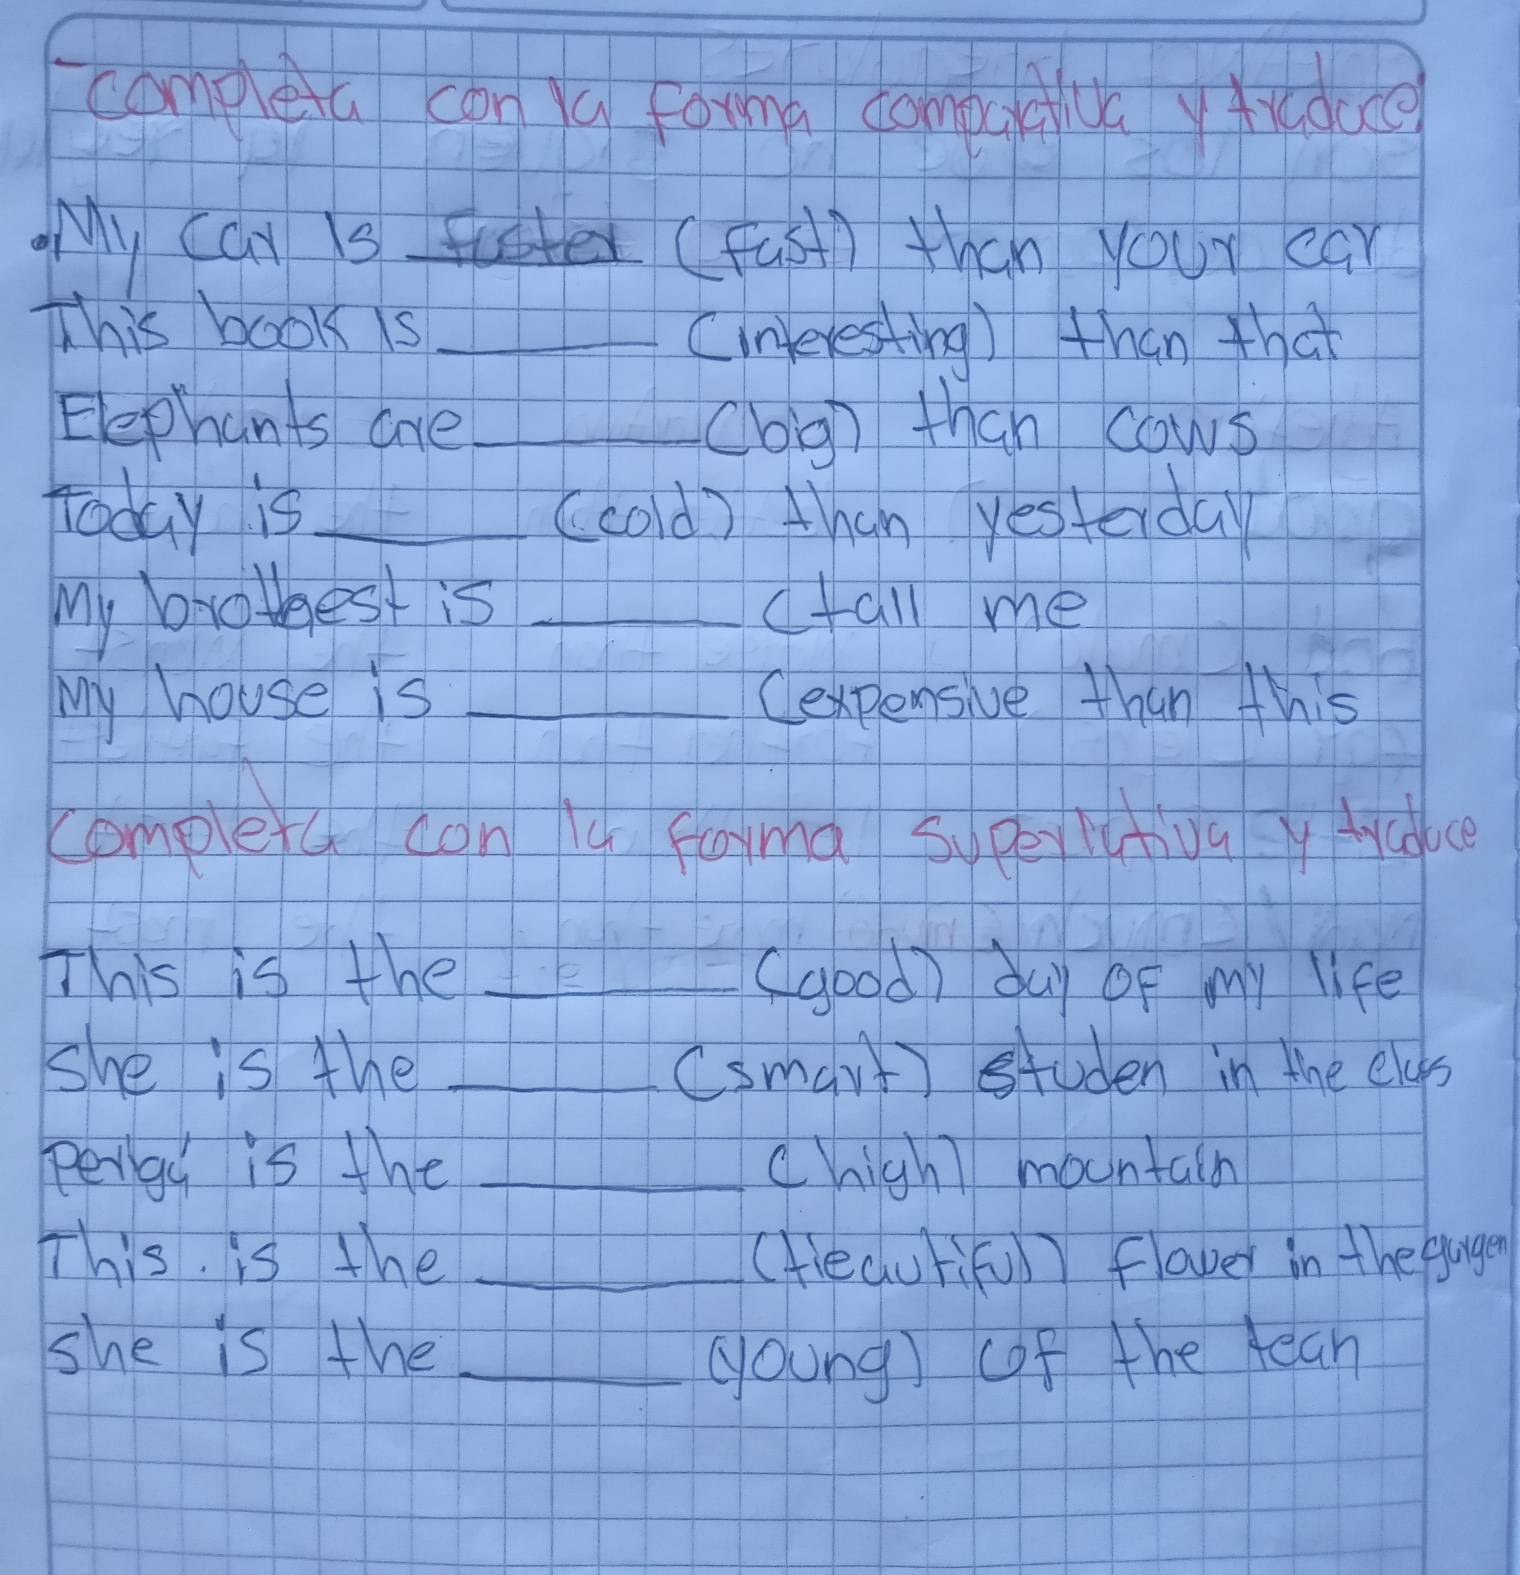 -completa con la forma comparativa y traduce
.My car is faster (fast) than your car
This book is ______ (interesting) than that
Elephants are ______ (big) than cows
Today is ______ (cold) than yesterday
My brothest is ______ (tall me
My house is ______ (expensive than this
completa con la forma superlativa y traduce
This is the ______ (good) day of my life
She is the ______ (smart) studen in the class
is the ______ (high) mountain
This. is the ______ (tieautiful) flower in the gargen
she is the ______ (young) of the tean